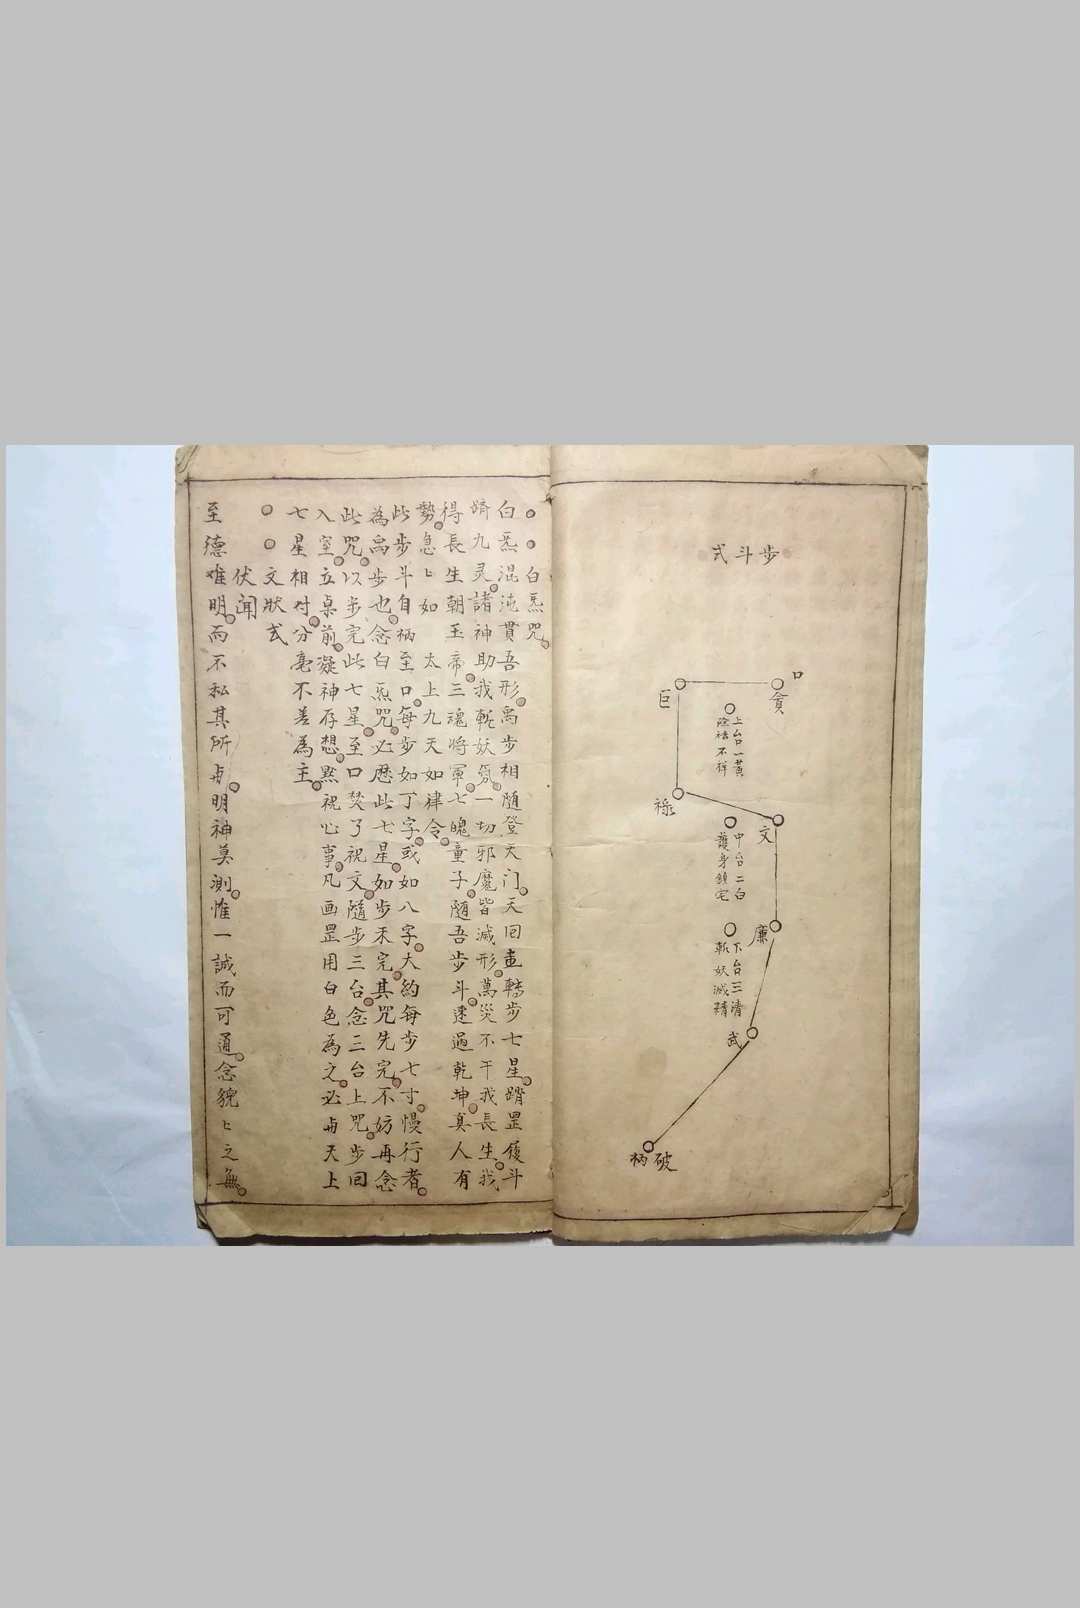 步斗式
口
貪
巨
祿
文
廉
武
破
柄
上台一黄
不祥
中台二白
護身鎮宅
下台三清
斬妖滅精
白炁咒
白炁混沌貫吾形禹步相隨登天门天回直轉步七星躋罡履斗
躋九灵諸神助我斬妖氛一切邪魔皆滅形萬災不干我長生我
得長生朝玉帝三魂将軍七魄童子随吾步斗速過乾坤真人有
勢急〻如　太上九天如律令
此步斗自柄至口每步如丁字或如八字大約每步七寸慢行者
為禹步也念白炁咒必歷此七星如步未完其咒先完不妨再念
此咒以步完此七星至口焚了祝文隨步三台念三台上咒步回
入室立桌前凝神存想黙祝心事凡画罡用白色為之必与天上
七星相对分毫不差為主
文狀式
伏闻
至德难明而不私其所与明神莫測惟一誠而可通念貌〻之無